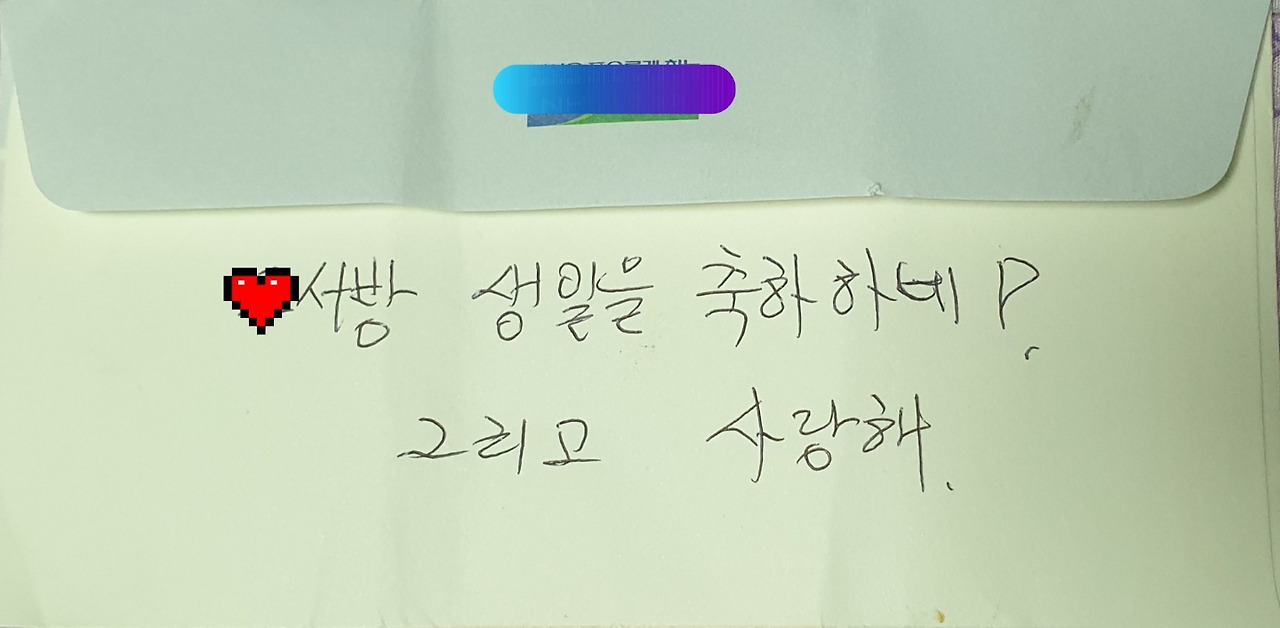 서방 생일을 축하하네!
그리고 사랑해.